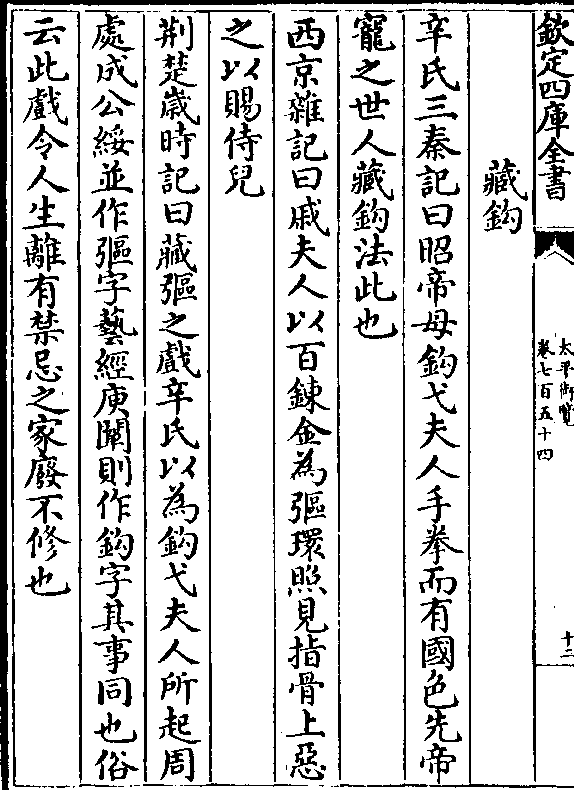 欽定四庫全書
太平御覽
卷七百五十四
十二
藏鈎
辛氏三秦記曰昭帝母鈎弋夫人手拳而有國色先帝
寵之世人藏鈎法此也
西京雜記曰戚夫人以百鍊金為彄環照見指骨上惡
之以賜侍兒
荆楚嵗時記曰藏彄之戲辛氏以為鈎弋夫人所起周
處成公綏並作彄字藝經庾闡則作鈎字其事同也俗
云此戲令人生離有禁忌之家廢不修也